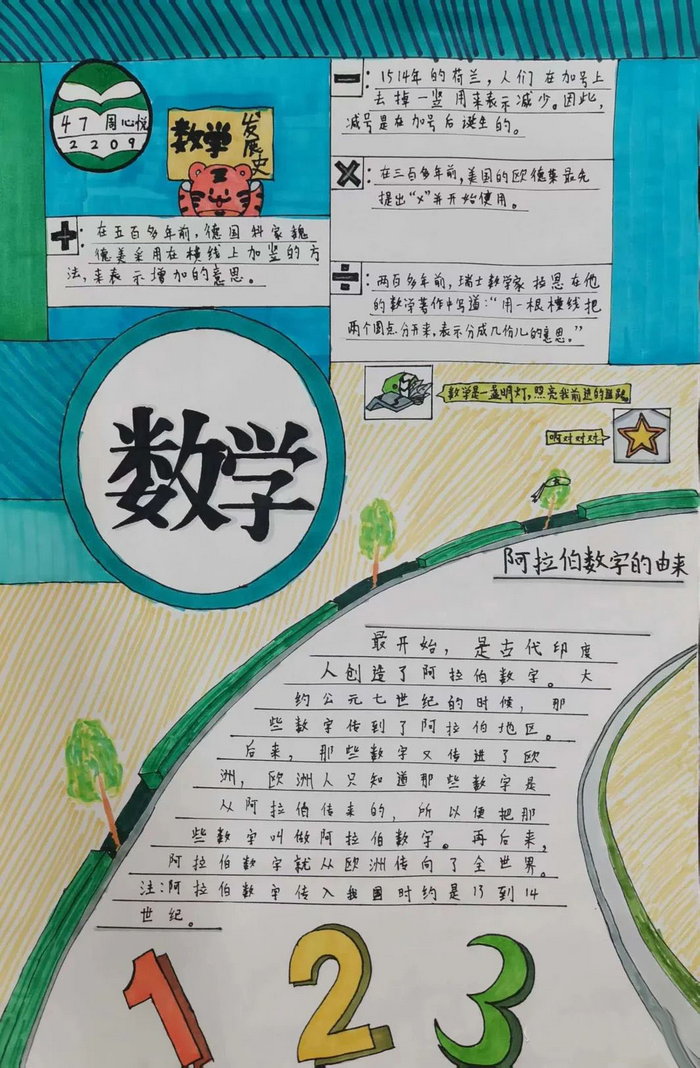 47 周心悦
2209
数学
发展史
+：在五百多年前，德国科家魏
德美采用在横线上加竖的方
法，来表示增加的意思。
-：1514年的荷兰，人们在加号上
去掉一竖用来表示减少。因此，
减号是在加号后诞生的。
×：在三百多年前，美国的欧德莱最先
提出“×”并开始使用。
÷：两百多年前，瑞士数学家拉恩在他
的数学著作中写道：“用一根横线把
两个圆点分开来，表示分成几份儿的意思。”
数学是一盏明灯，照亮我前进的道路。
啊对对对
数学
阿拉伯数字的由来
最开始，是古代印度
人创造了阿拉伯数字。大
约公元七世纪的时候，那
些数字传到了阿拉伯地区。
后来，那些数字又传进了欧
洲，欧洲人只知道那些数字是
从阿拉伯传来的，所以便把那
些数字叫做阿拉伯数字。再后来，
阿拉伯数字就从欧洲传向了全世界。
注：阿拉伯数字传入我国时约是13到14
世纪。
1 2 3